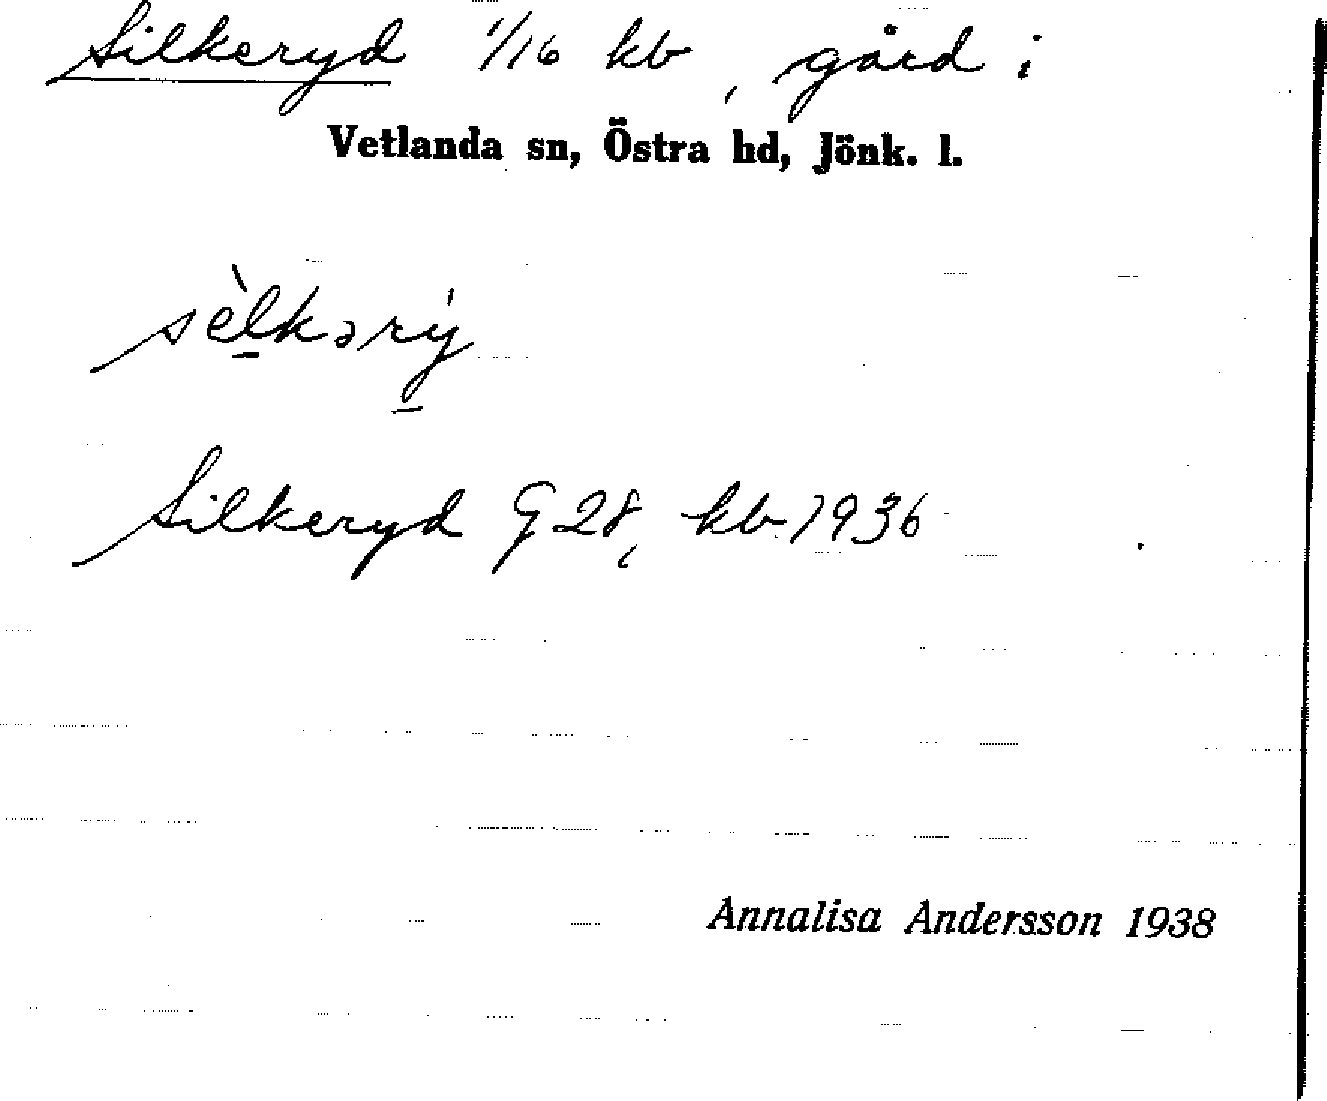 Silkeryd 1/16 kb, gård i
Vetlanda sn, Östra hd, Jönk. l.
sèlkərý
Silkeryd G 28, kb 1936
Annalisa Andersson 1938